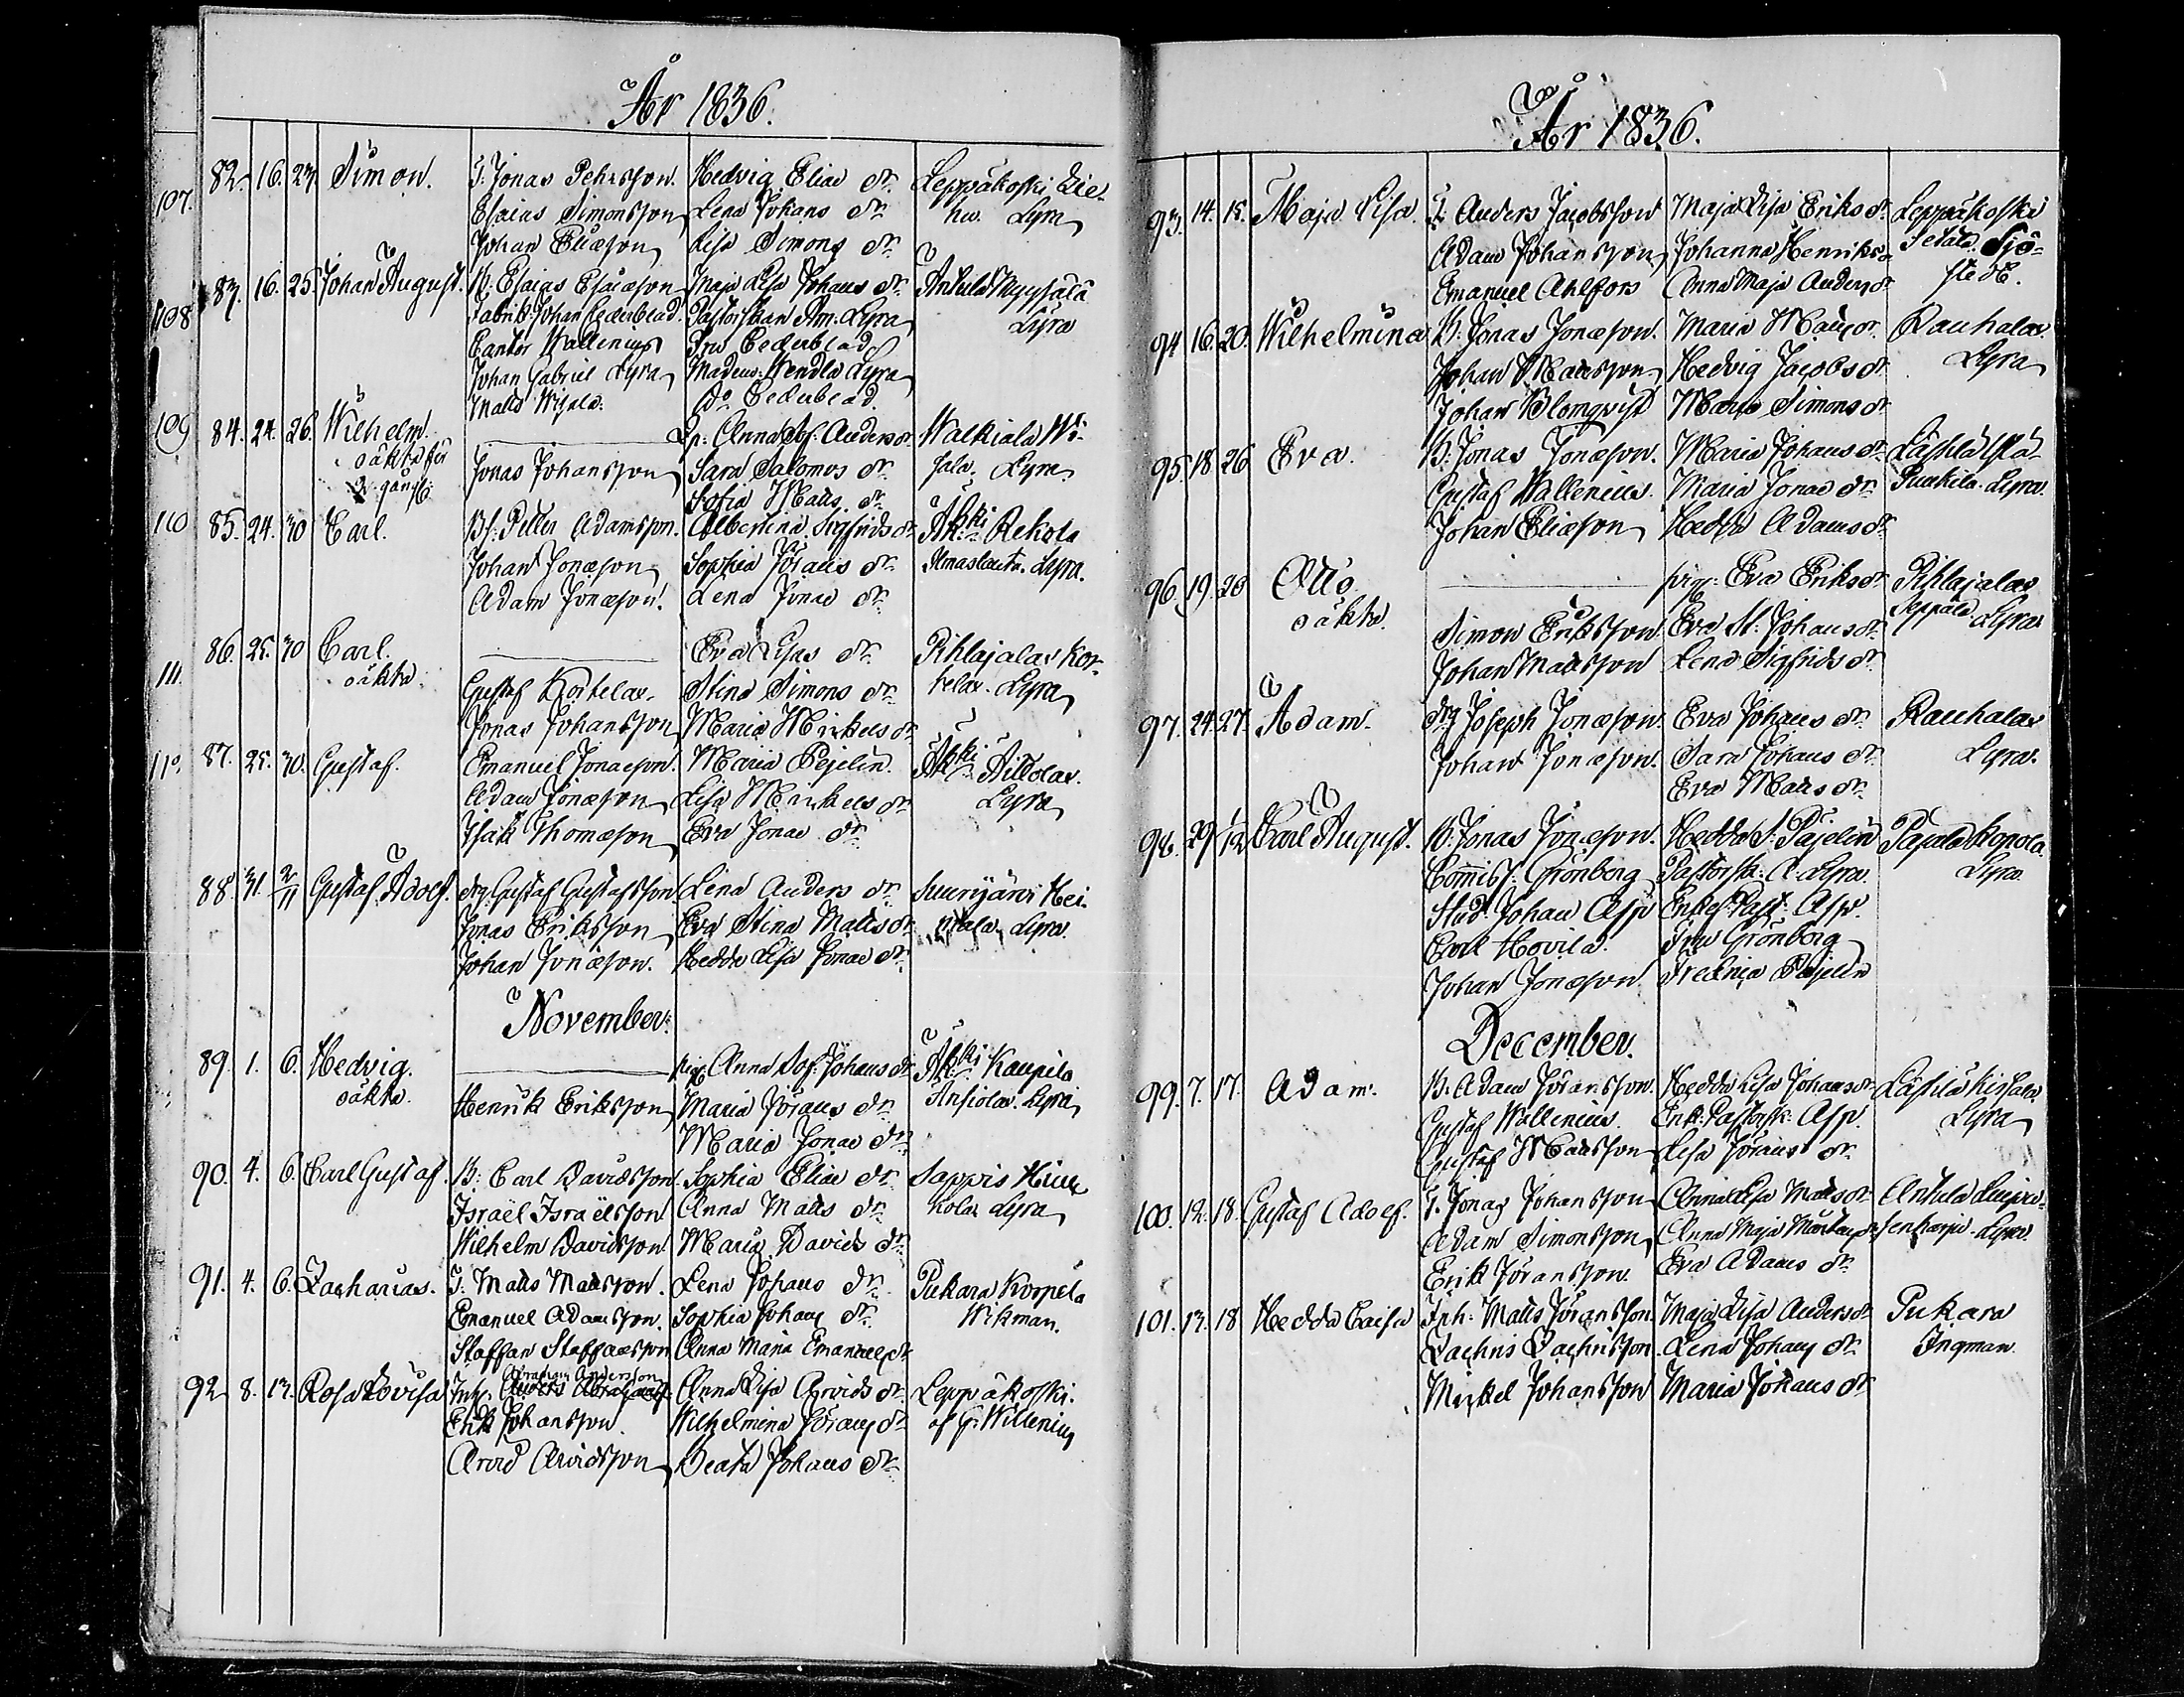 År 1836.
107. 82. 16. 23. Simon. T. Jonas Pehrsson. Hedvig Eliae dr Leppäkoski Lie-
Esaias Simonsson Lena Johans dr hu. Lyra
Johan Eliæson Lisa Simons dr
108 83. 16. 25. Johan August. B. Esaias Esaiæson Maja Lisa Johans dr Anhula
Fabrik: Johan Cederblad. Pastorskan Am: Lyra Lyra
Cantor Wallenius Fru Cederblad
Johan Gabriel Lyra Madems: Wendla Lyra
Matts Wijala. Do Cederblad.
109 84. 24. 26. Wilhelm. Anna Sof: Anders dr Walkiala Wi-
oäkta för Jonas Johansson Sara Salomos dr jala. Lyra
2 gång: Sofia Matts dr
110 85. 24. 30 Carl. Petter Adamsson. Albertina Sigfrids dr Rekola
Johan Jonæson Sophia Jörans dr Lyra.
Adam Jonæson. Lena Jonae dr
111. 86. 25. 30 Carl. Eva dr Pihlajalax Kor-
oäkta. Gustaf Kortelax. Stina Simons dr telax. Lyra
Jonas Johansson Maria Mickels dr
87. 25. 30. Gustaf. Emanuel Jonaeson. Maria Pejelin.
Adam Jonæson Lisa Mickels dr Lyra
Isak Thomæson Eva Jonae dr
88. 31. 2/11 Gustaf Adolf. drg Gustaf Gustafsson. Lena Anders dr Suurijärvi Hei-
Jonas Eriksson Eva Stina Matts dr Lyra.
Johan Jonæson. Hedda Lisa Jonae dr
November.
89. 1. 6. Hedvig. pig. Anna Sof. Johans dr Kaupila
oäkta. Henrik Eriksson Maria Jörans dr Ansiolax. Lyra
Maria Jonae dr
90. 4. 6. Carl Gustaf. B: Carl Davidsson. Sophia Eliae dr Sappis
Israël Israëlsson Anna Matts dr kola. Lyra
Wilhelm Davidsson. Maria Davids dr
91. 4. 6. Zacharias. T. Matts Mattsson. Lena Johans dr Pukara Korpela
Emanuel Adamsson. Sophia Johans dr Wikman.
Staffan Staffansson Anna Maria Emanuels dr
Abraham Andersson
92 8. 13. Rosa Lovisa Inh. Anders Anna Lisa Arvids dr Leppäkoski.
Erik Johansson. Wilhelmina Jörans dr af G. Willenius
Arvid Arvidsson Beata Johans dr
År 1836.
93. 14. 15. Maja Lisa. T. Anders Jacobsson Maja Lisa Eriks dr Leppäkoski
Adam Johansson Johanna Henriks dr Setälä. Sjö-
Emanuel Ahlfors Anna Maja Anders dr stedt.
94 16. 20. Wilhelmina B: Jonas Jonæson. Maria Matts dr Rauhala
Johan Mattsson Hedvig Jacobs dr Lyra
Johan Blomqvist Maria Simons dr
95. 18. 26 Eva. B: Jonas Jonæson. Maria Johans dr Lassila
Gustaf Wallenius. Maria Jonae dr Lyra.
Johan Eliæson Hedda Adams dr
96. 19. 20 Otto pig: Eva Eriks dr Pihlajalax
oäkta. Simon Eriksson. Eva St. Johans dr Seppälä. Lyra
Johan Mattsson Lena Sigfrids dr
97. 24. 27. Adam. drg Joseph Jonæson. Eva Johans dr Rauhala
Johan Jonæson. Sara Johans dr Lyra.
Eva Matts dr
98. 29 1/12 Carl August. B. Jonas Jonæson. Hedda S. Pajelin Pajula Kopola.
Commiss: Grönberg Pastorsk: A. Lyra. Lyra
Stud. Johan Asp Enkef. Past: Asp.
Carl Hovila. Fru Grönberg
Johan Jonæson. Fredrica Pajelin
December.
99. 7. 17. Adam. B. Adam Jöransson. Hedda Lisa Johans dr Lassila
Gustaf Wallenius. Enk: Pastorsk: Asp. Lyra
Gustaf Mattsson Lisa Jörans dr
100. 12. 18. Gustaf Adolf. T. Jonas Johansson Anna Lisa Matts dr
Adam Simonsson Anna Maja Lyra.
Erik Jöransson. Eva Adams dr
101. 13. 18 Hedda Caisa Inh: Matts Jöransson. Maja Lisa Anders dr Pukara
Zachris Zachrisson. Lena Johans dr Ingman.
Mickel Johansson Maria Johans dr